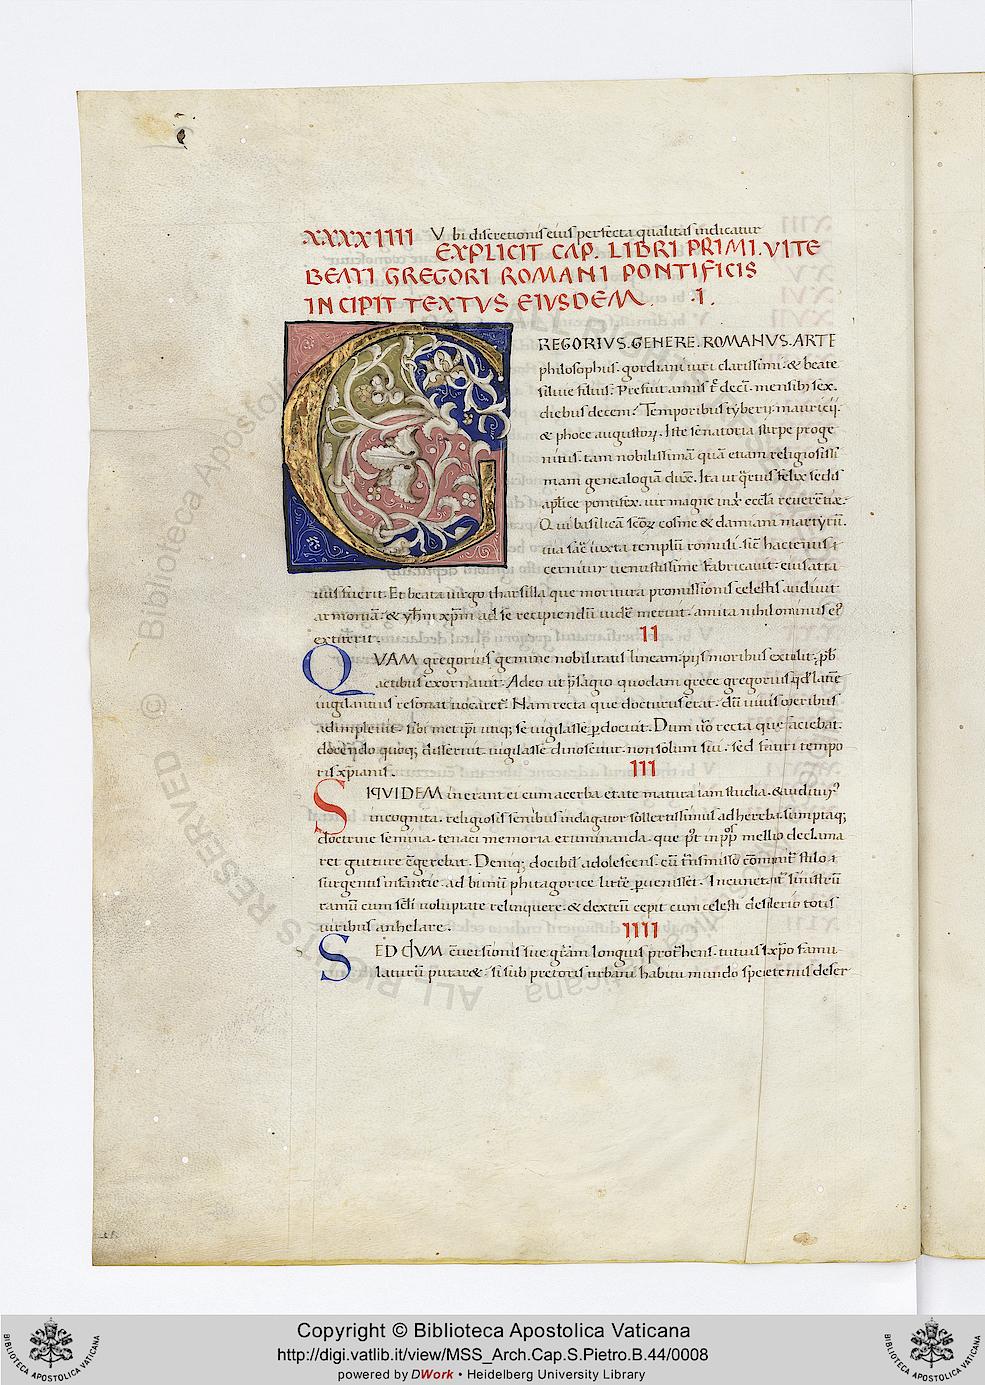 XXXXIIII Vbi discretionis eius perfecta qualitas indicatur
EXPLICIT CAP. LIBRI PRIMI. VITE
BEATI GREGORI ROMANI PONTIFICIS
INCIPIT TEXTVS EIUSDEM. .I.
GREGORIVS. GENERE. ROMANVS. ARTE
philosophus. gordiani uiri clarissimi. & beate
siluie filius. Presuit annis
diebus decem. Temporibus tyberij. mauricij.
& phoce augustoꝝ. Iste senatoria stirpe proge
nitus. tam nobilissimā quā etiam religiosissi
mam genealogiā Ita ut felix sedis
aplice pontifex. uir magne reuerētie.
Qui basilicā cosme & damiani martyrū.
uia iuxta templū romuli. hactenus
cernitur uenustissime fabricauit. eius atta
uus fuerit. Et beata uirgo tharsilla que moritura promissionis celestis audiuit
armoniā. & xp̄m ad se recipiendū uidē meruit. amita nihilominus
extiterit.
II
QVAM gregorius gemine nobilitatis lineam. pijs moribus extulit.
actibus exornauit. Adeo ut quodam grece gregorius
uigilantius resonat uocaret. Nam recta que docturus erat. dū uiuis operibus
adimpleuit. sibimet se uigilasse docuit. Dum recta que faciebat.
docendo disseruit uigilasse dinoscitur. non solum sui. sed futuri tempo
ris xp̄ianis.
III
SIQVIDEM inerant ei cum acerba etate matura iam studia. & audituꝫ
incognita. religiosis senibus indagator sollertissimus adherebat. sumptaqꝫ
doctrine semina. tenaci memoria eruminanda. que declama
ret gutture egerebat. Deniqꝫ docibilis adolescens. stilo
surgentis infantie. ad biuiū phitagorice peruenisset. sinistrū
ramū cum seculi uoluptate relinquere. & dexterū cepit cum celesti desiderio totis
uiribus anhelare.
IIII
SED CVM cōuersionis sue longius tutius xp̄o famu
laturū putaret. si sub pretoris urbani habitu mundo specietenus deser
Copyright © Biblioteca Apostolica Vaticana
http://digi.vatlib.it/view/MSS_Arch.Cap.S.Pietro.B.44/0008
powered by DWork • Heidelberg University Library